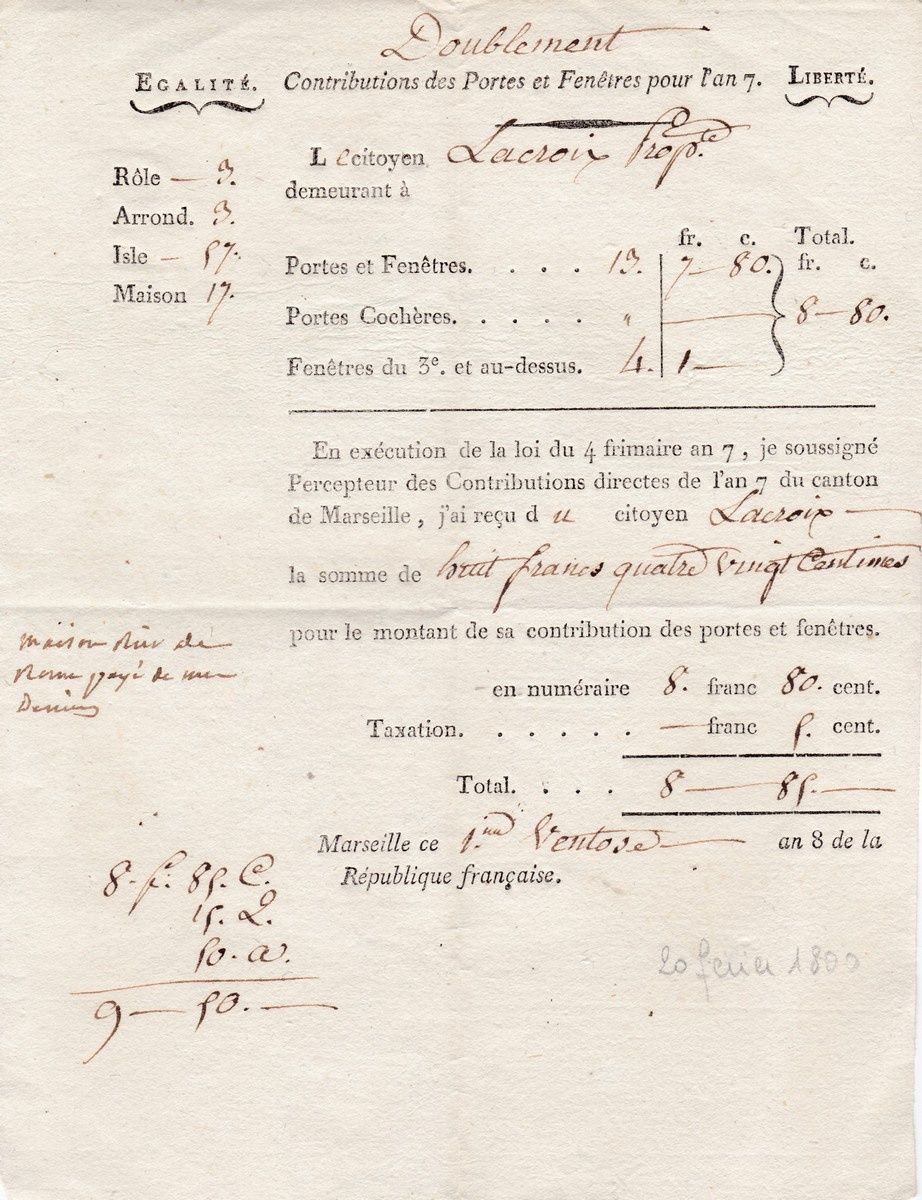 Doublement
EGALITÉ. Contributions des Portes et Fenêtres pour l'an 7. LIBERTÉ.
Le citoyen Lacroix Prop.re
demeurant à
Rôle — 3.
Arrond. 3.
Isle — 57.
Maison 17.
fr. c. Total.
Portes et Fenêtres. . . . . 13. 7 — 80. fr. c.
Portes Cochères. . . . . " — 8 — 80.
Fenêtres du 3e. et au-dessus. 4. 1 —
En exécution de la loi du 4 frimaire an 7, je soussigné
Percepteur des Contributions directes de l'an 7 du canton
de Marseille, j'ai reçu du citoyen Lacroix —
la somme de huit francs quatre vingt Centimes
pour le montant de sa contribution des portes et fenêtres.
maison Rue de
Rome payé de mes
Deniers
en numéraire 8. franc 80. cent.
Taxation. . . . . . — franc 5. cent.
Total. . . . 8 — 85. —
Marseille ce 1.er Ventose — an 8 de la
République française.
8. f. 85. C.
15. Q.
50. a.
9 — 50. —
20 fevrier 1800